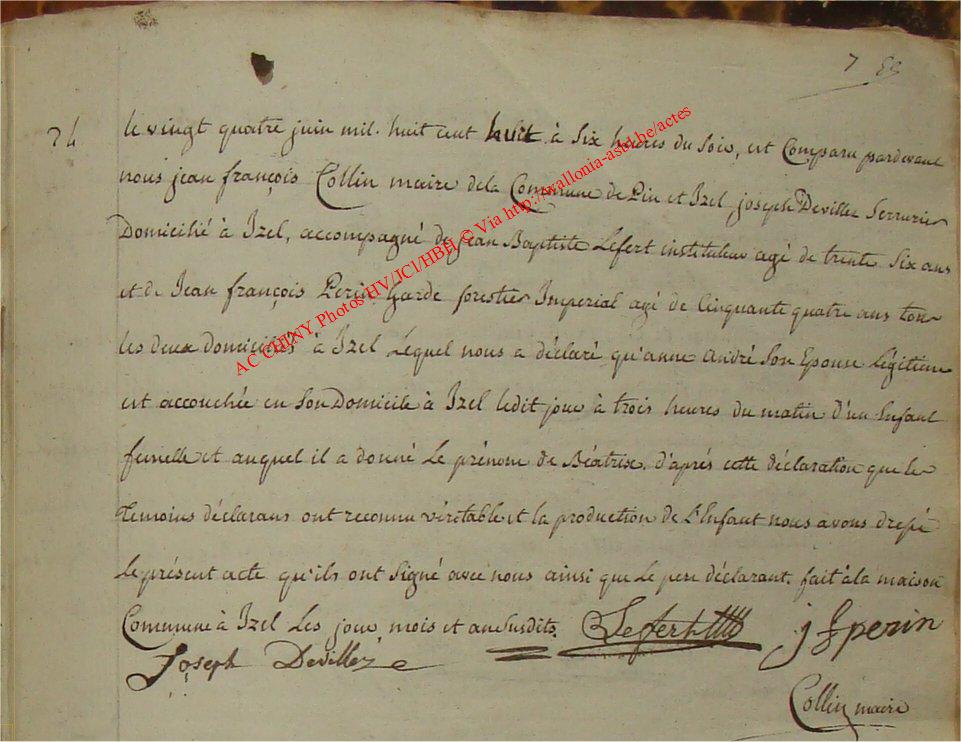 7
24
le vingt quatre juin mil. huit cent huit à Six heures du Soir, est Comparu pardevant
nous jean françois Collin maire dela Commune de Pin et Izel joseph Devillez Serrurier
Domicilié à Izel, accompagné de Jean Baptiste Lefert instituteur agé de trente Six ans
et de Jean françois Perin Garde forestier Imperial agé de Cinquante quatre ans tous
les deux domiciliés à Izel Lequel nous a déclaré qu'anne André Son Epouse légitime
est accouchée en Son Domicile à Izel ledit jour à trois heures du matin d'un Enfant
femelle et auquel il a donné Le prénom de Béatrix. d'aprés cette déclaration que les
temoins déclarans ont reconnu véritable et la production de L'Enfant nous avons dressé
Le présent acte qu'ils ont Signé avec nous ainsi que Le pere déclarant. fait à la maison
Commune à Izel Les jour, mois et an Susdits.
Lefert
j f perin
Joseph Devillez
Collin maire
AC CHINY Photos HV/JCl/HBH © Via http://wallonia-asbl.be/actes